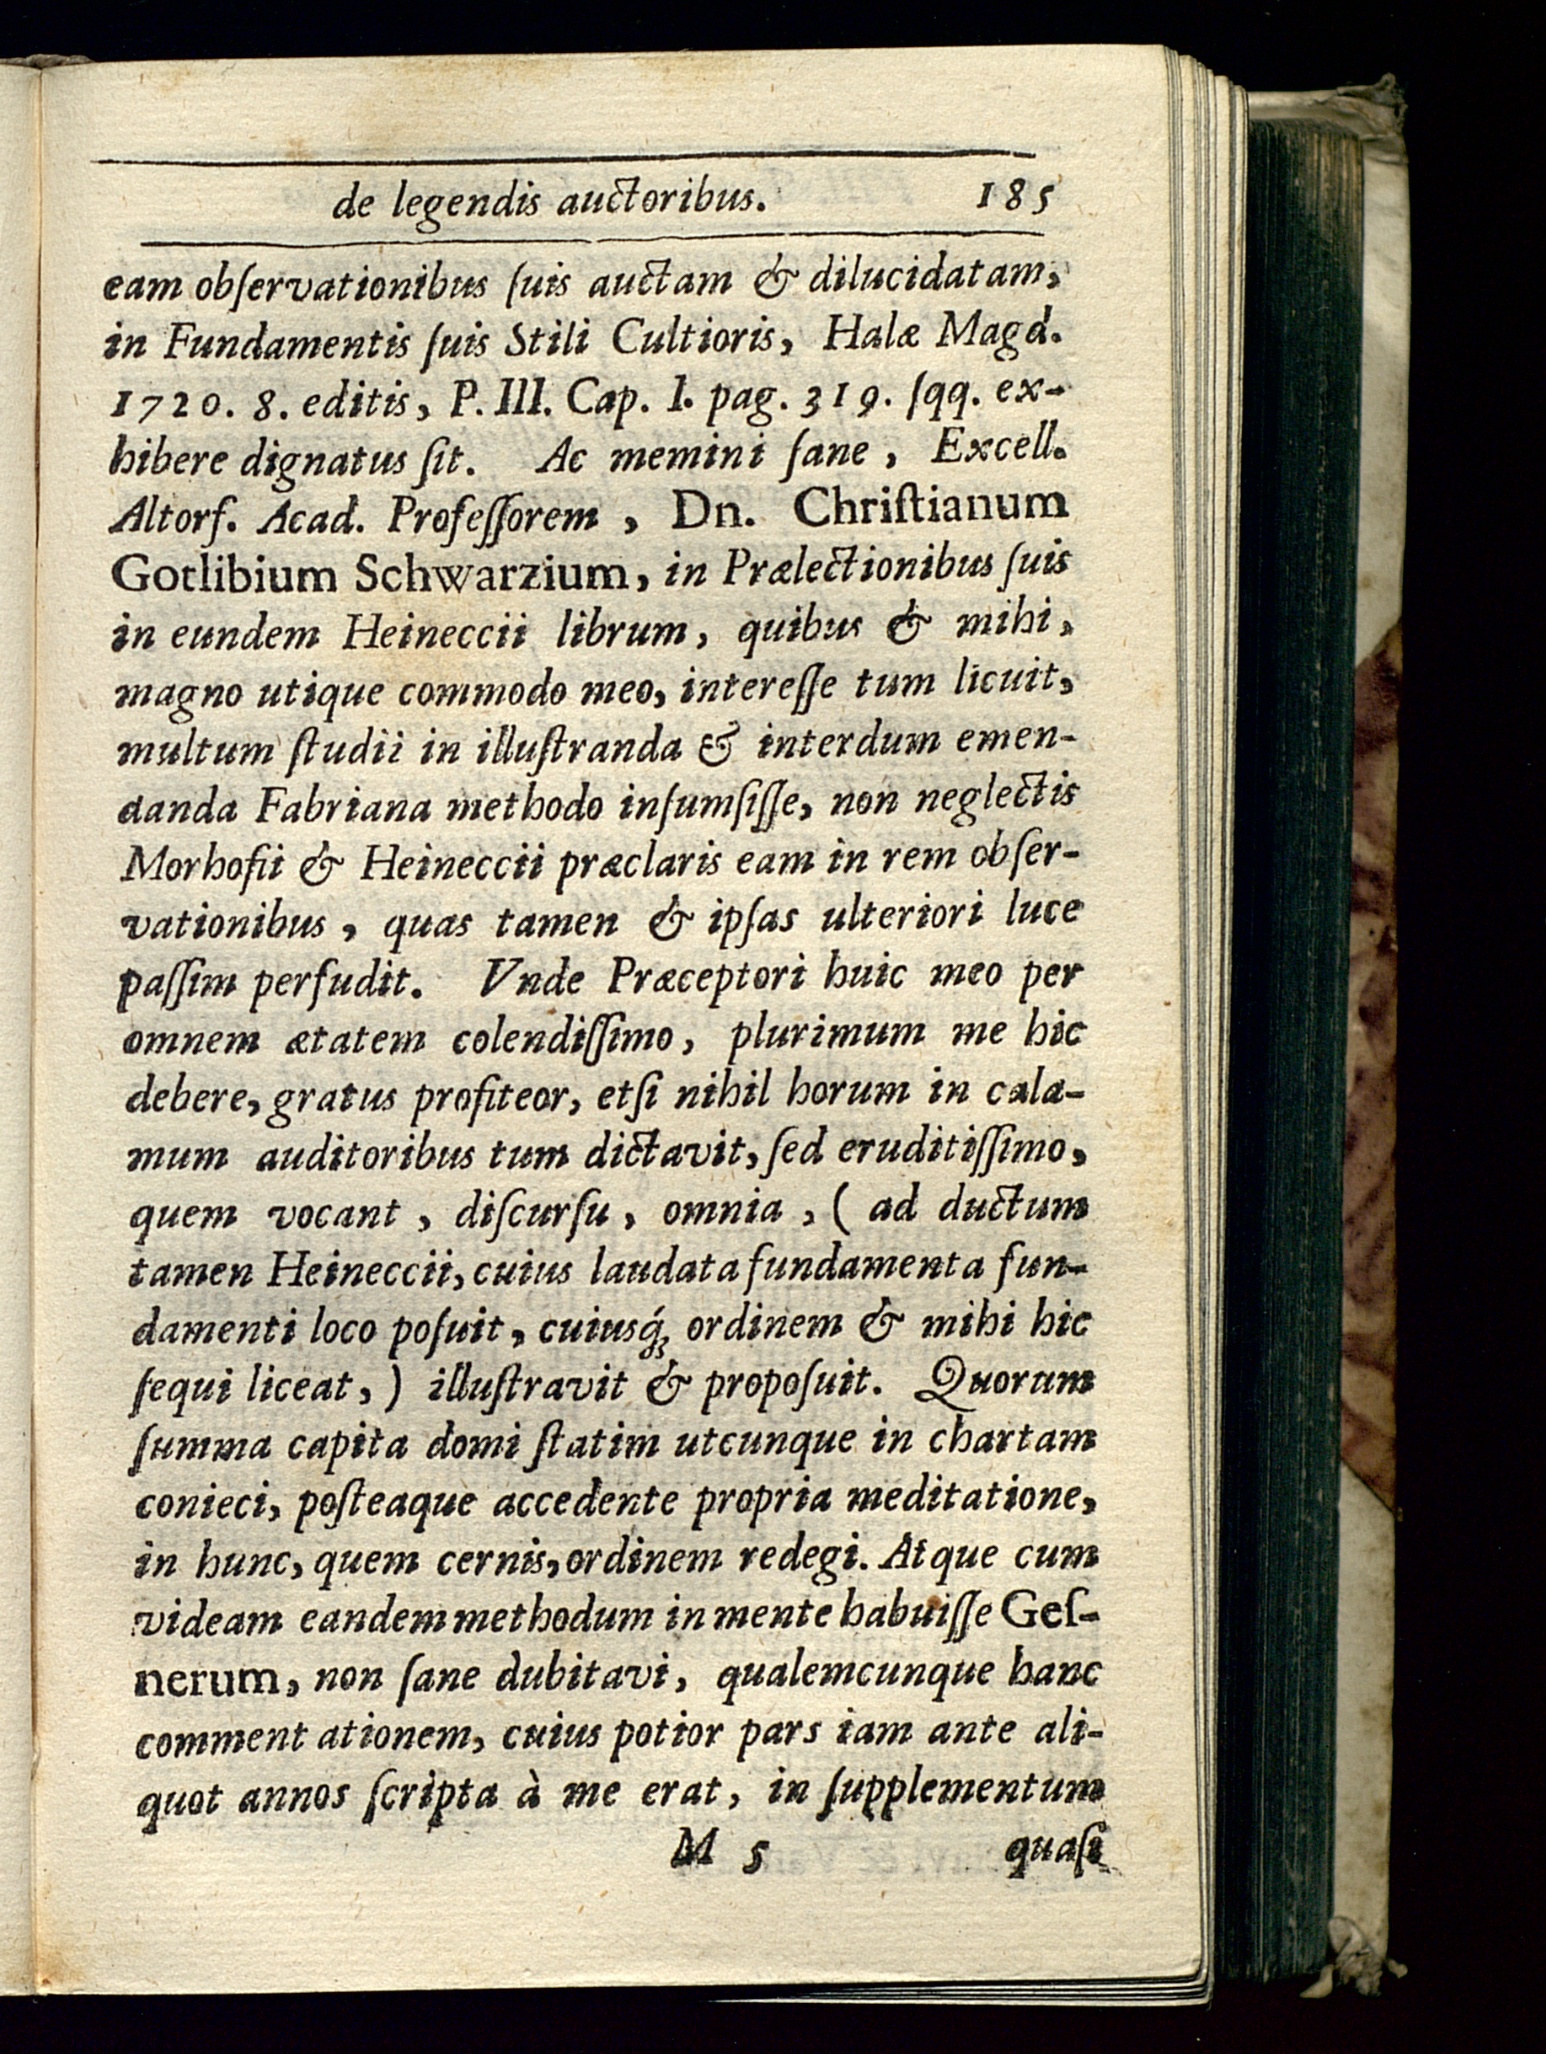 de legendis auctoribus. 185
eam obſervationibus ſuis auctam & dilucidatam,
in Fundamentis ſuis Stili Cultioris, Halæ Magd.
1720. 8. editis, P. III. Cap. I. pag. 319. ſqq. ex-
hibere dignatus ſit. Ac memini ſane, Excell.
Altorf. Acad. Profeſſorem, Dn. Chriſtianum
Gotlibium Schwarzium, in Prælectionibus ſuis
in eundem Heineccii librum, quibus & mihi,
magno utique commodo meo, intereſſe tum licuit,
multum ſtudii in illuſtranda & interdum emen-
danda Fabriana methodo inſumſiſſe, non neglectis
Morhofii & Heineccii præclaris eam in rem obſer-
vationibus, quas tamen & ipſas ulteriori luce
paſſim perfudit. Vnde Præceptori huic meo per
omnem ætatem colendiſſimo, plurimum me hic
debere, gratus profiteor, etſi nihil horum in cala-
mum auditoribus tum dictavit, ſed eruditiſſimo,
quem vocant, diſcurſu, omnia, (ad ductum
tamen Heineccii, cuius laudata fundamenta fun-
damenti loco poſuit, cuiusq́; ordinem & mihi hic
ſequi liceat,) illuſtravit & propoſuit. Quorum
ſumma capita domi ſtatim utcunque in chartam
conieci, poſteaque accedente propria meditatione,
in hunc, quem cernis, ordinem redegi. Atque cum
videam eandem methodum in mente habuiſſe Geſ-
nerum, non ſane dubitavi, qualemcunque hanc
commentationem, cuius potior pars iam ante ali-
quot annos ſcripta à me erat, in ſupplementum
M 5 quaſi